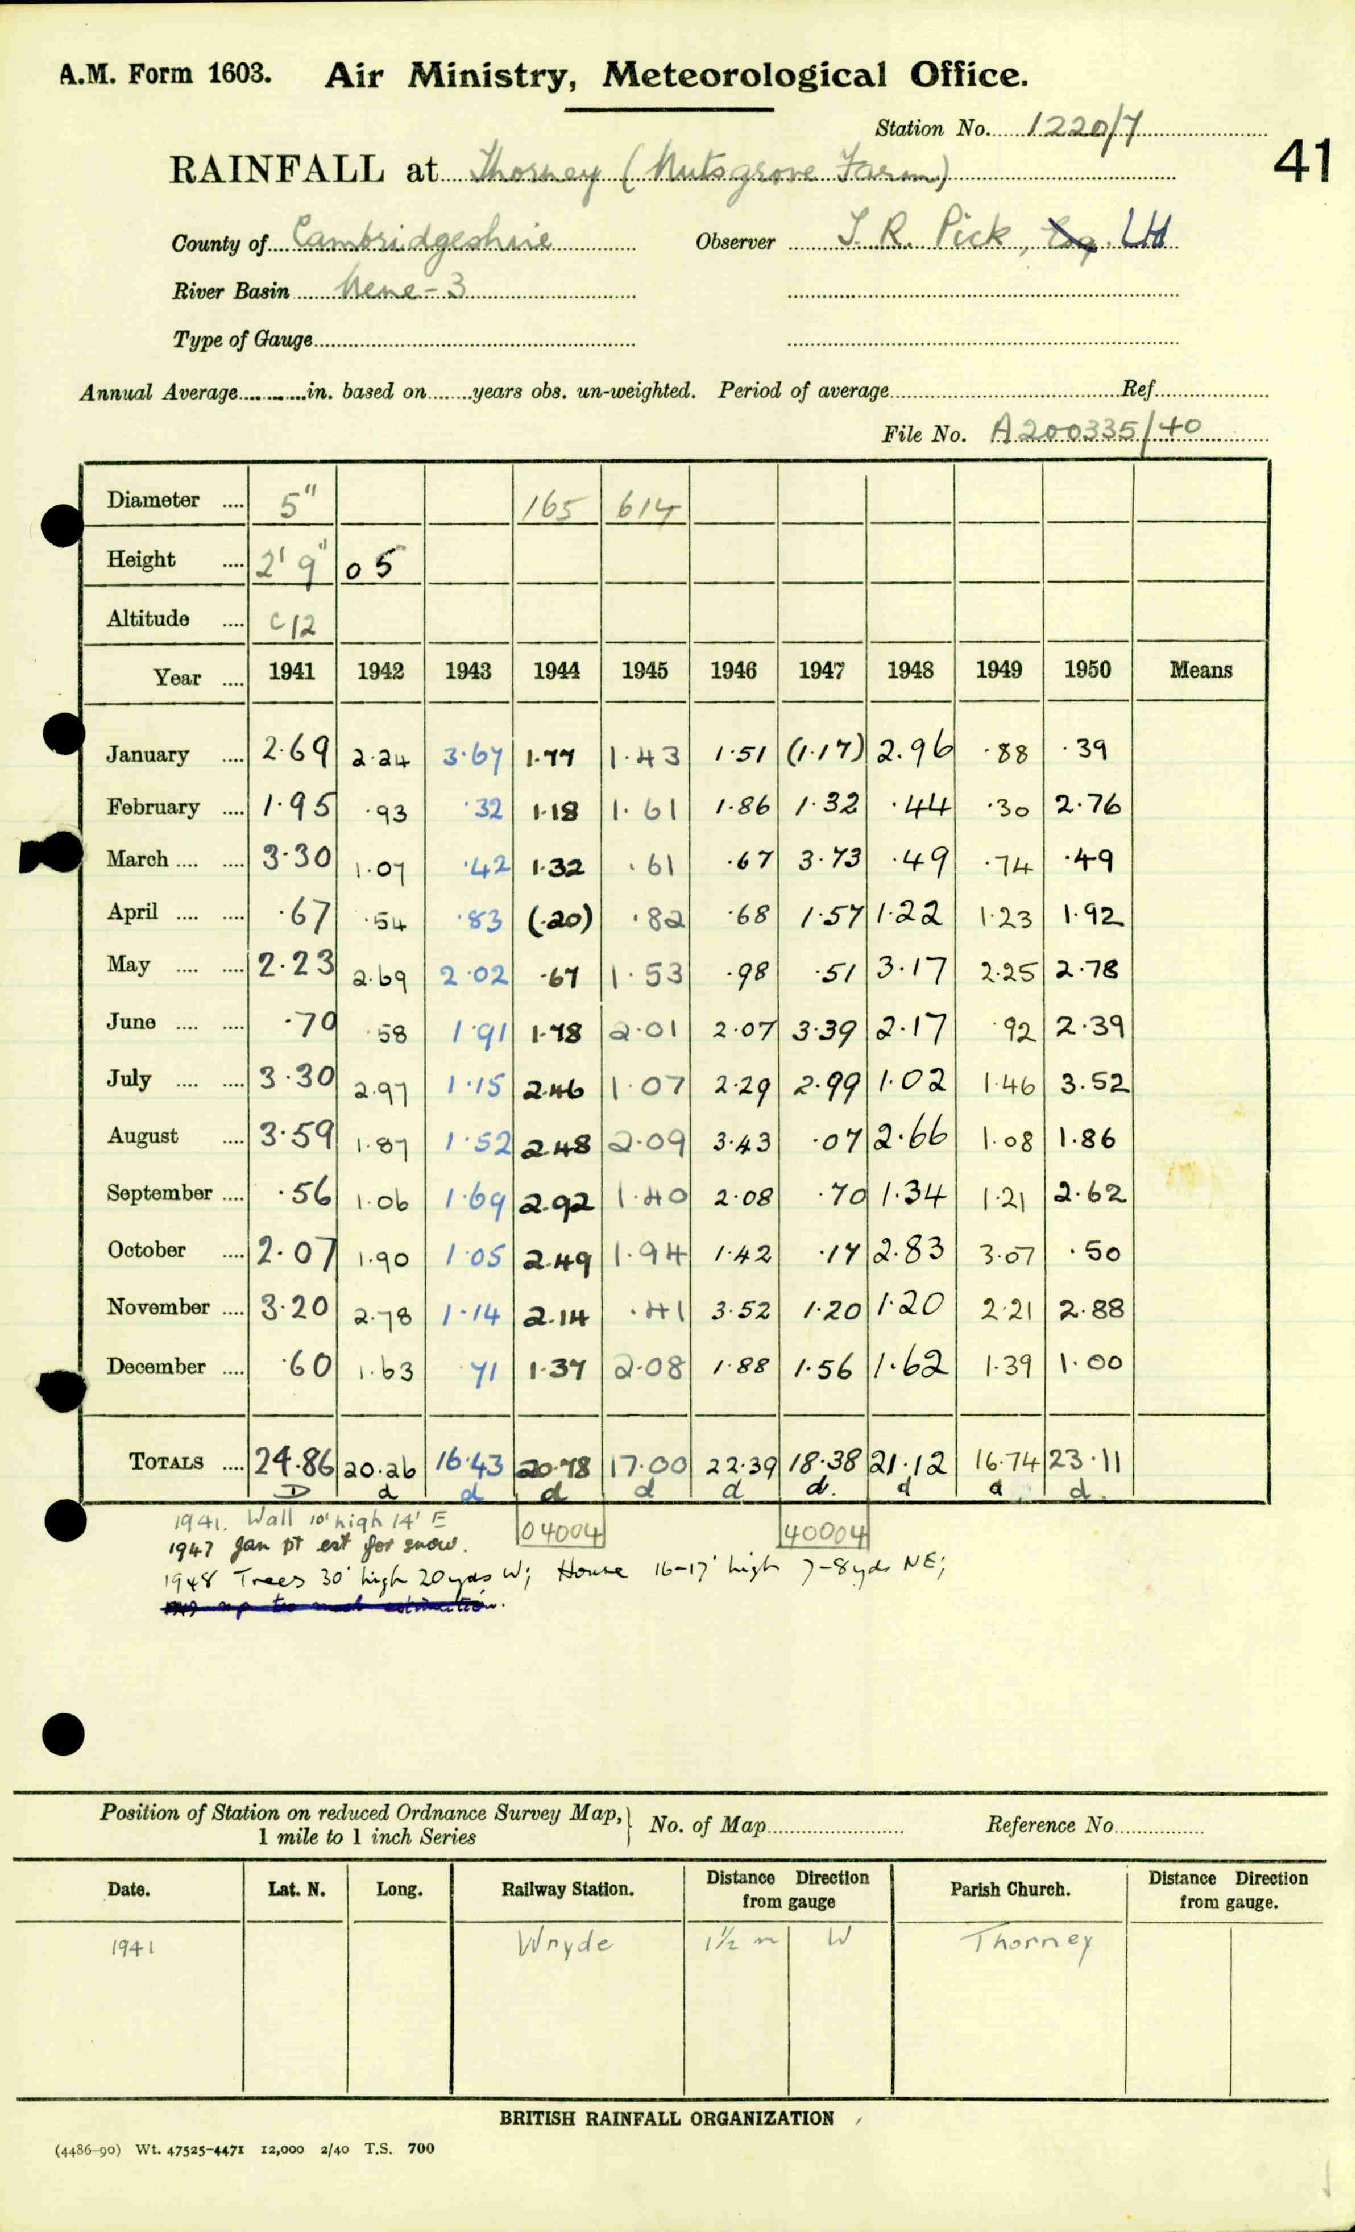 A.M. Form 1603. Air Ministry, Meteorological Office.
Station No. 1220/7
41
RAINFALL at Thorney (Nutsgrove Farm)
County of Cambridgeshire Observer T. R. Pick, Esq. Ltd
River Basin Nene-3
Type of Gauge
Annual Average in. based on years obs. un-weighted. Period of average Ref
File No. A200335/40
Diameter 5" 165 614
Height 2' 9" 05
Altitude C12
Year 1941 1942 1943 1944 1945 1946 1947 1948 1949 1950 Means
January 2.69 2.24 3.67 1.77 1.43 1.51 (1.17) 2.96 .88 .39
February 1.95 .93 .32 1.18 1.61 1.86 1.32 .44 .30 2.76
March 3.30 1.07 .42 1.32 .61 .67 3.73 .49 .74 .49
April .67 .54 .83 (.20) .82 .68 1.57 1.22 1.23 1.92
May 2.23 2.69 2.02 .67 1.53 .98 .51 3.17 2.25 2.78
June .70 .58 1.91 1.78 2.01 2.07 3.39 2.17 .92 2.39
July 3.30 2.97 1.15 2.46 1.07 2.29 2.99 1.02 1.46 3.52
August 3.59 1.87 1.52 2.48 2.09 3.43 .07 2.66 1.08 1.86
September .56 1.06 1.69 2.92 1.40 2.08 .70 1.34 1.21 2.62
October 2.07 1.90 1.05 2.49 1.94 1.42 .17 2.83 3.07 .50
November 3.20 2.78 1.14 2.14 .41 3.52 1.20 1.20 2.21 2.88
December .60 1.63 .71 1.37 2.08 1.88 1.56 1.62 1.39 1.00
TOTALS 24.86 20.26 16.43 20.78 17.00 22.39 18.38 21.12 16.74 23.11
D d d d d d d. d d d.
1941. Wall 10' high 14' E 04004 40004
1947 Jan pt est for snow.
1948 Trees 30' high 20yds W; House 16-17' high 7-8yds NE;
Position of Station on reduced Ordnance Survey Map, 1 mile to 1 inch Series No. of Map Reference No
Date. Lat. N. Long. Railway Station. Distance Direction from gauge Parish Church. Distance Direction from gauge.
1941 Wryde 1½ m W Thorney
BRITISH RAINFALL ORGANIZATION
(4486-90) Wt. 47525-4471 12,000 2/40 T.S. 700